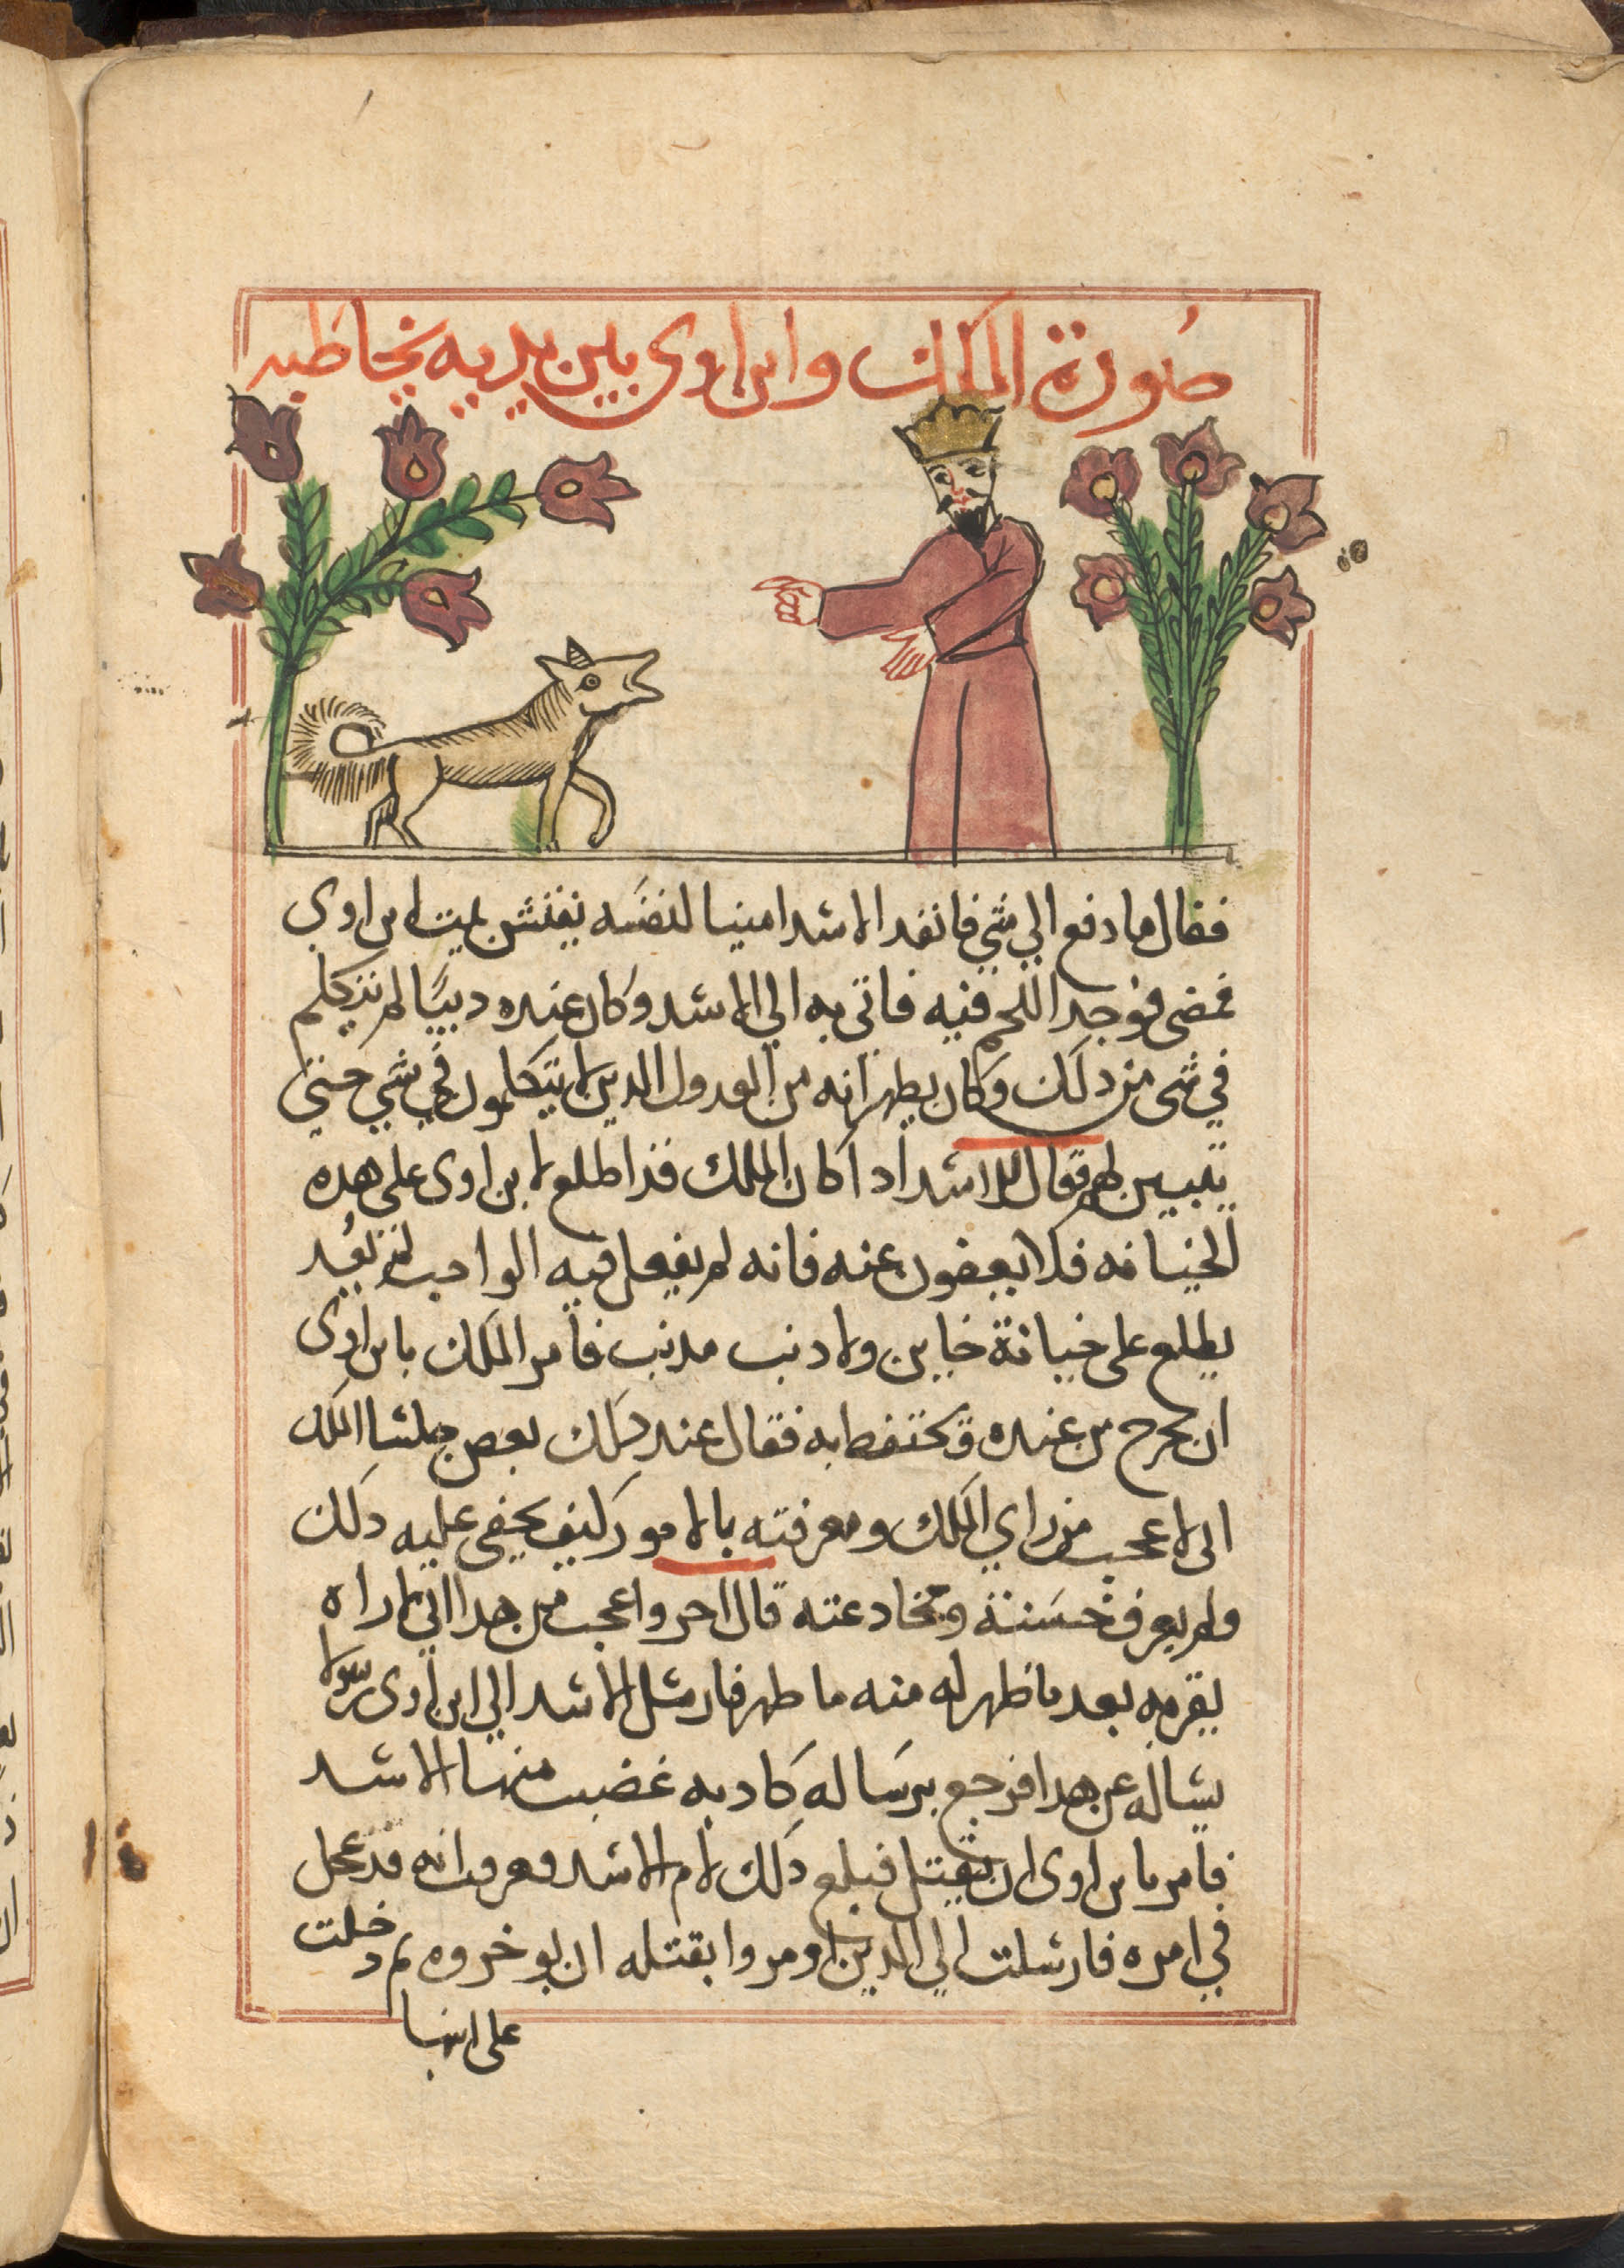 صورة الملك وابن اوى بين يديه يخاطبه
فقال ما دفع الي شي فانفد الاسد امينا لنفسه يفتش بيت ابن اوى
فمضى فوجد اللحم فيه فاتى به الي الاسد وكان عنده ديبا لم يتكلم
في شى من دلك وكان يطهر انه من العدول الدين لا يتكلمون في شي حتى
يتبين لهم فقال للاسد ادا كان الملك قد اطلع لابن اوى على هده
الخيانه فلا يعفون عنه فانه لم يفعل فيه الواجب لم يعد
يطلع على خيانة خاين ولا دنب مدنب فامر الملك بابن اوى
ان يخرج من عنده ويحتفط به فقال عند دلك بعض جلسا الملك
انى لاعجب من راي الملك ومعرفته بالامور كيف يخفى عليه دلك
ولم يعرف خسسته ومخادعته قال اخر واعجب من هدا اني لاراه
يقربه بعد ما ظهر له منه ما طهر فارسل الاسد الي ابن اوى رسولا
يساله عن هدا فرجع برساله كادبه غضب منها الاسد
فامر بابن اوى ان يقتل فبلغ دلك لام الاسد فعرفت انه قد عجل
في امره فارسلت الي الدين اومروا بقتله ان يوخروه ثم دخلت
على ابنها